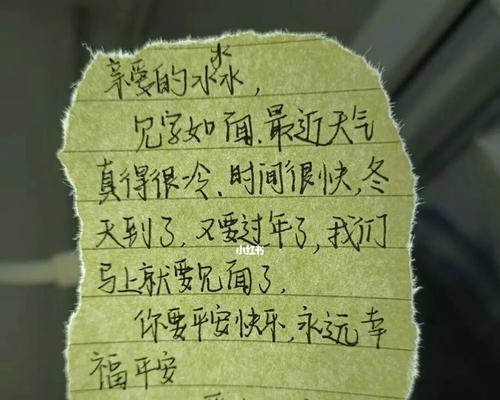 亲爱的淼,
见字如面.最近天气
真得很冷、时间很快,冬
天到了,又要过年了,我们
马上就要见面了.
你要平安快乐,永远幸
福平安
小红书